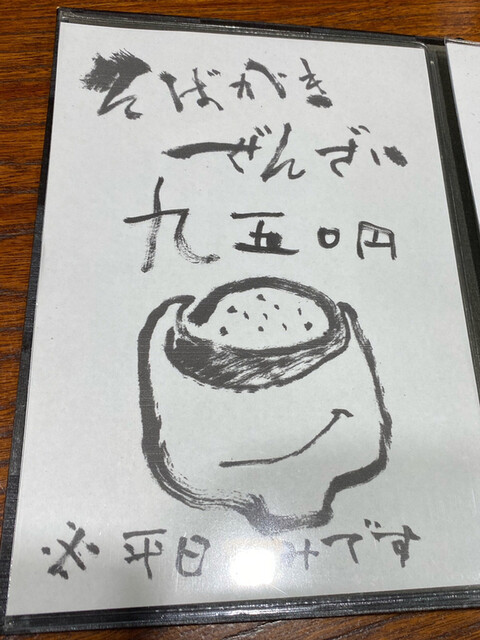 そばがき
ぜんざい
九五〇円
※平日のみです